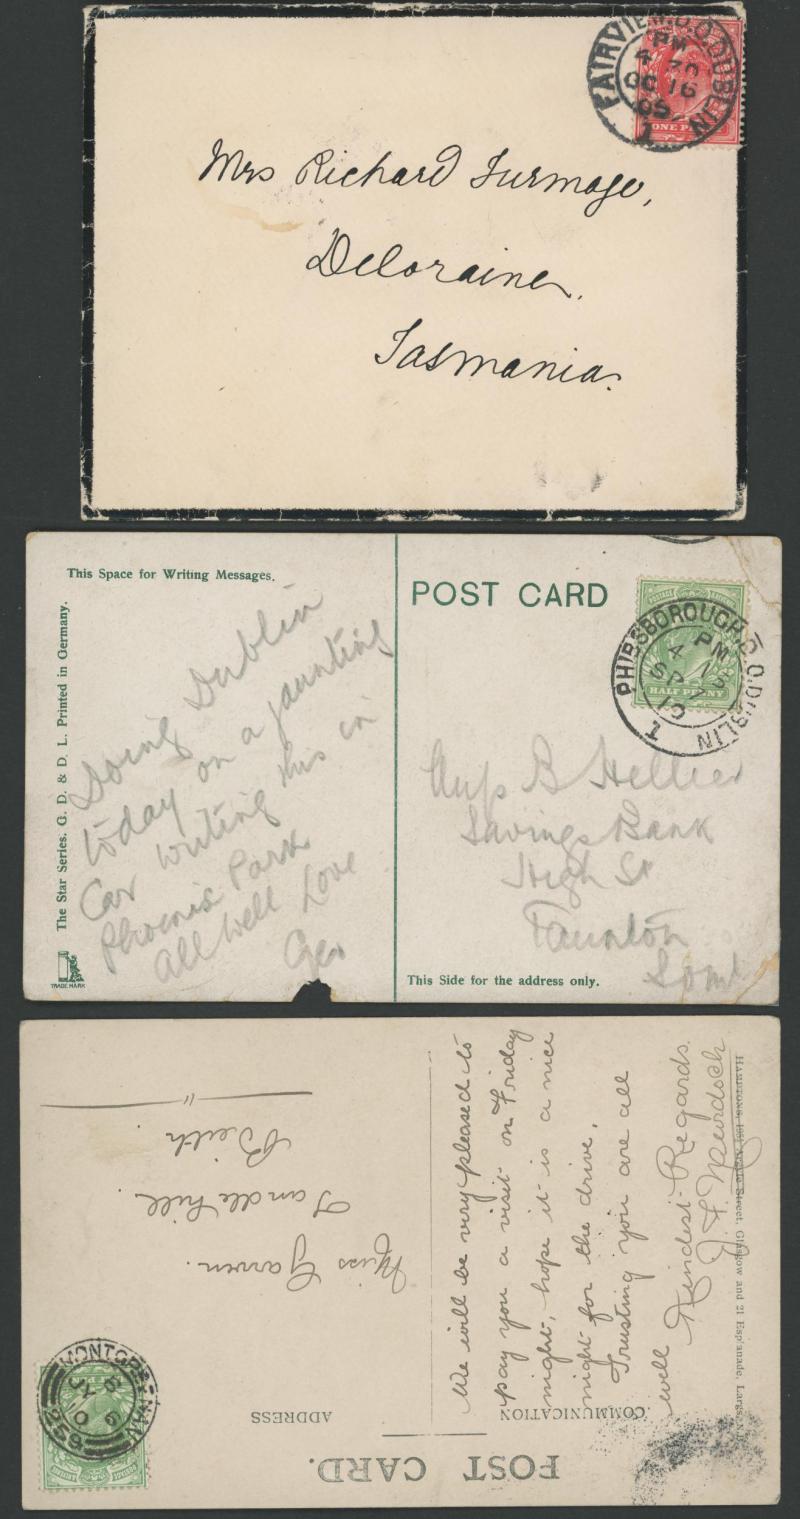 FAIRVIEW.D.O.DUBLIN
PM
4 30
OC 16
05
1
ONE P
Mrs Richard Furmage,
Deloraine,
Tasmania.
This Space for Writing Messages.
POST CARD
The Star Series. G. D. & D. L. Printed in Germany.
TRADE MARK
POSTAGE
HALF PENNY
PHIBSBOROUGH.B.O.DUBLIN
PM
4 15
SP 7
10
1
Doing Dublin
today on a jaunting
Car writing this in
Phoenix Park
All Well Love
Geo
B Hellier
Savings Bank
High St
Taunton
Somt
This Side for the address only.
POST CARD.
COMMUNICATION
ADDRESS
We will be very pleased to
pay you a visit on Friday
night, hope it is a nice
night for the drive,
Trusting you are all
well Kindest Regards.
J F Murdoch
Street, Glasgow and 21 Esplanade, Largs.
MONTGREENAN
259
Miss Garven.
Tandlehill.
Beith.